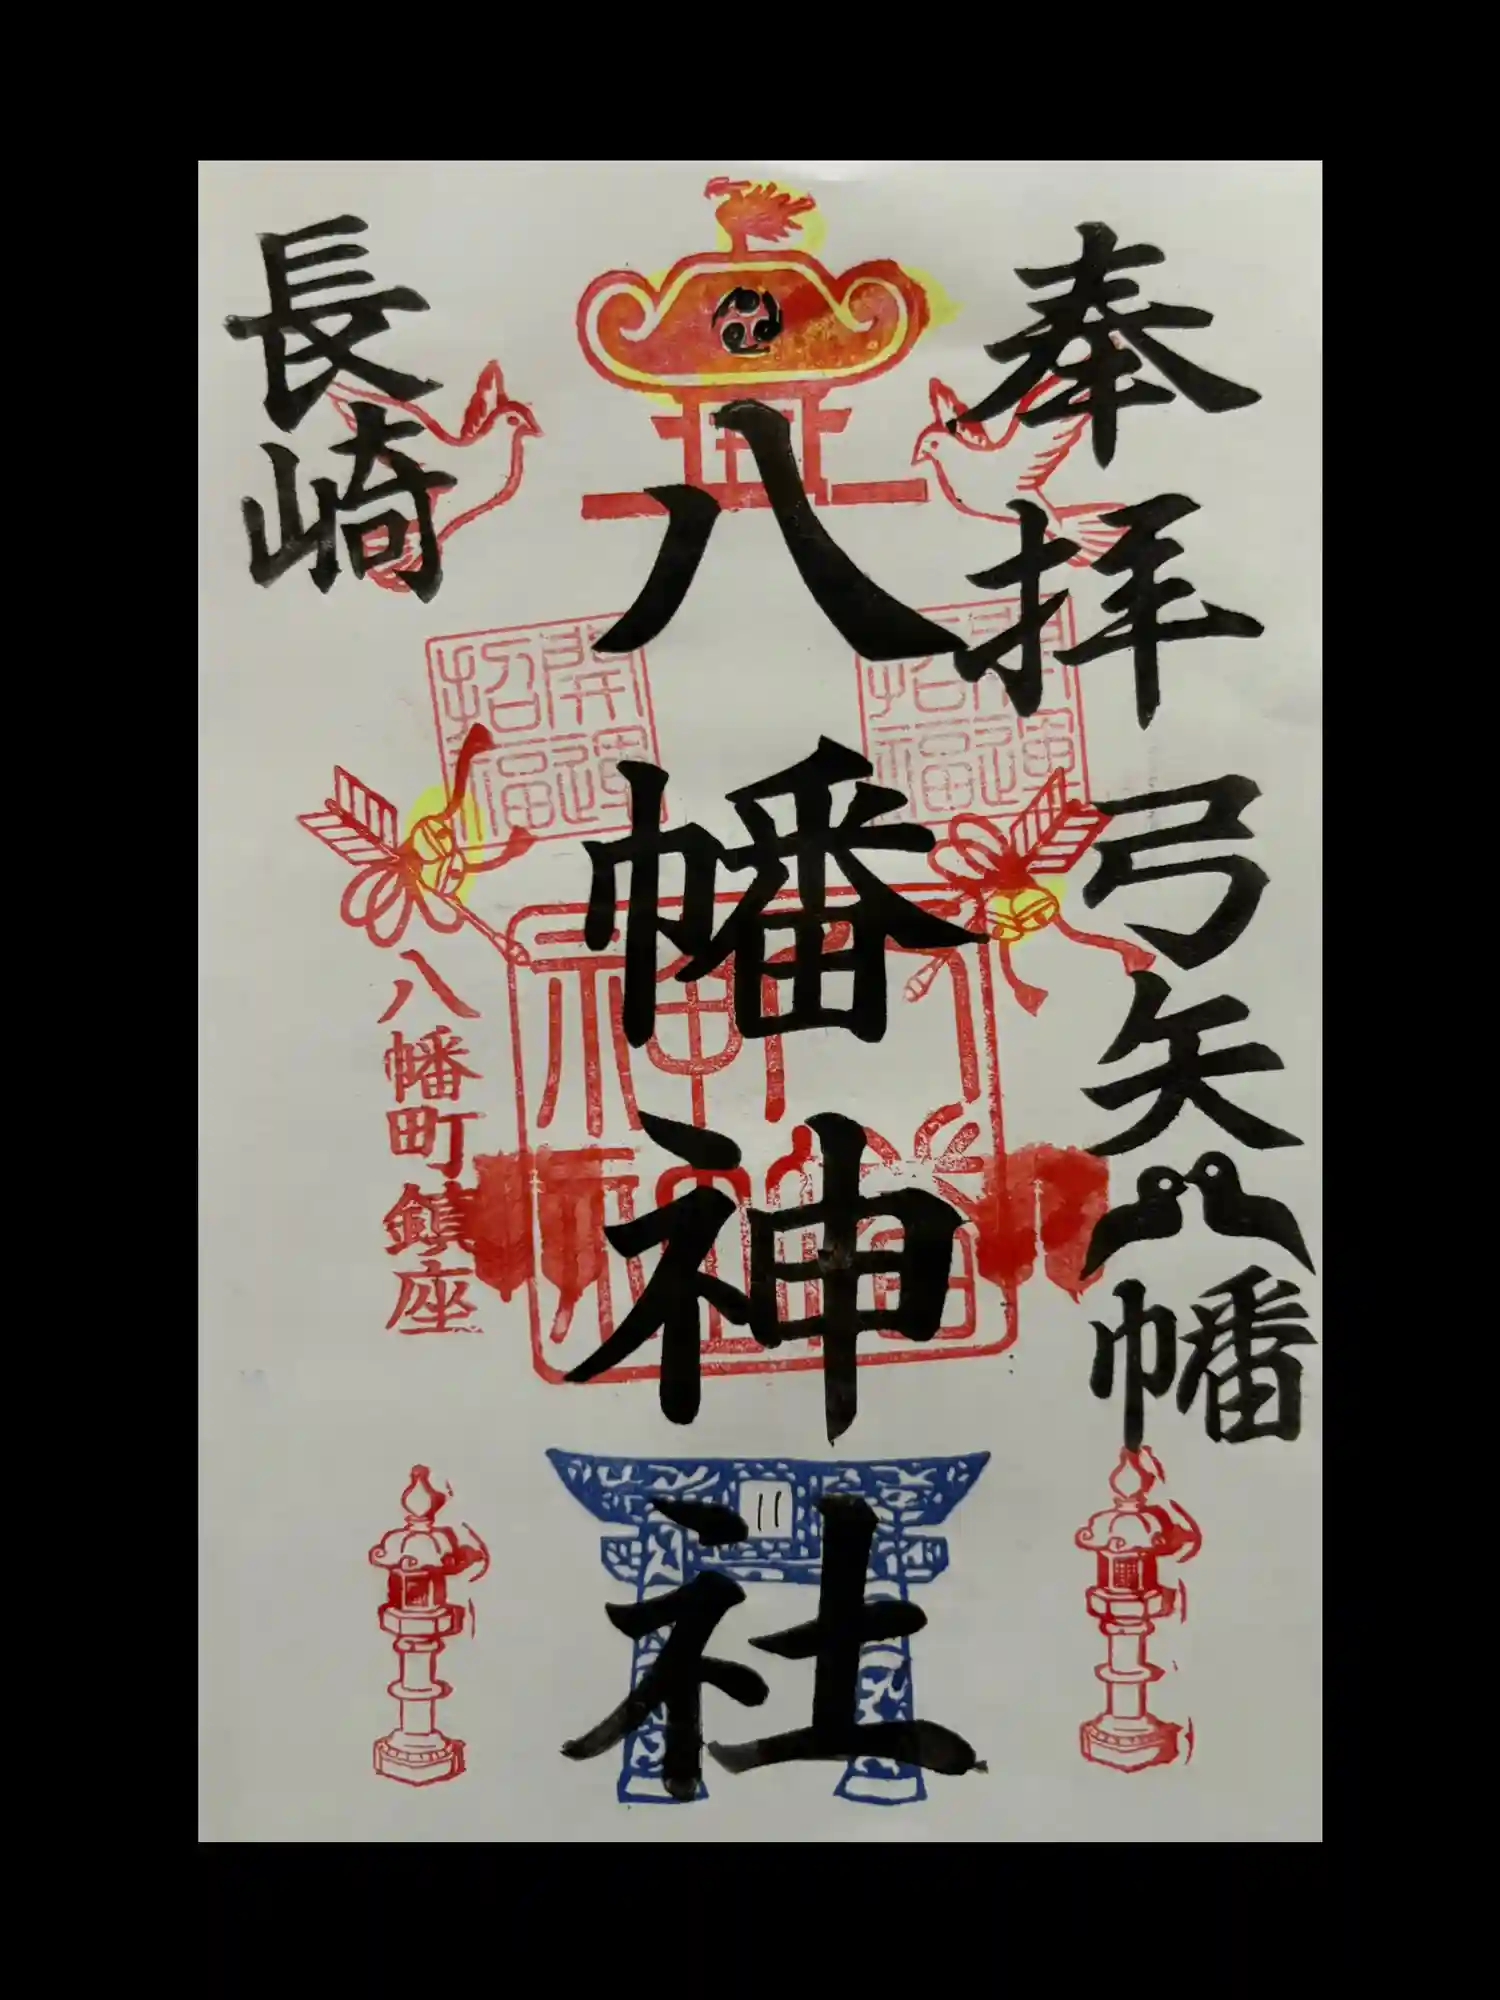 奉拝
弓矢八幡
八幡神社
長崎
開運
招福
開運
招福
八幡町鎮座